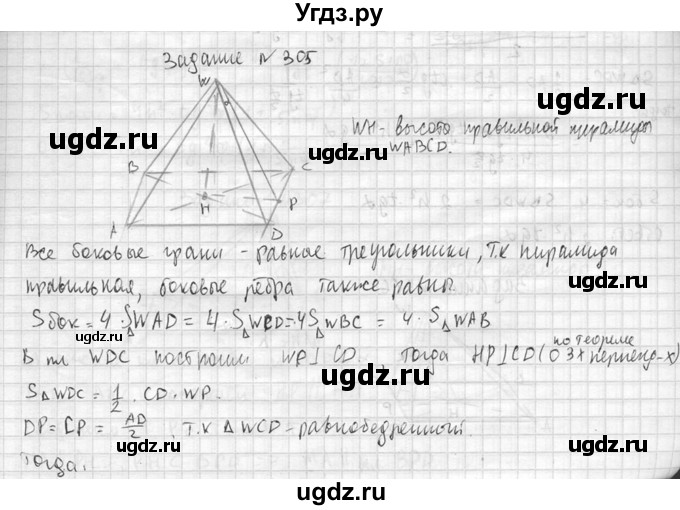 Угдз.ру
Задание № 305
W
ugdz.ru
ugdz.ru
WH - высота правильной пирамиды
WABCD.
ugdz.ru
B
C
H
P
A
D
Все боковые грани - равные треугольники, т.к пирамида
правильная, боковые рёбра также равны.
ugdz.ru
ugdz.ru
Sбок = 4·S△WAD = 4·S△WCD = 4S△WBC = 4·S△WAB
ugdz.ru
В пл WDC построим WP⊥CD, тогда HP⊥CD (по теореме
О 3х перпенд-х)
S△WDC = 1/2 · CD · WP.
ugdz.ru
DP = CP = AD/2, т.к △WCD - равнобедренный.
ugdz.ru
Тогда.
ugdz.ru
ugdz.ru